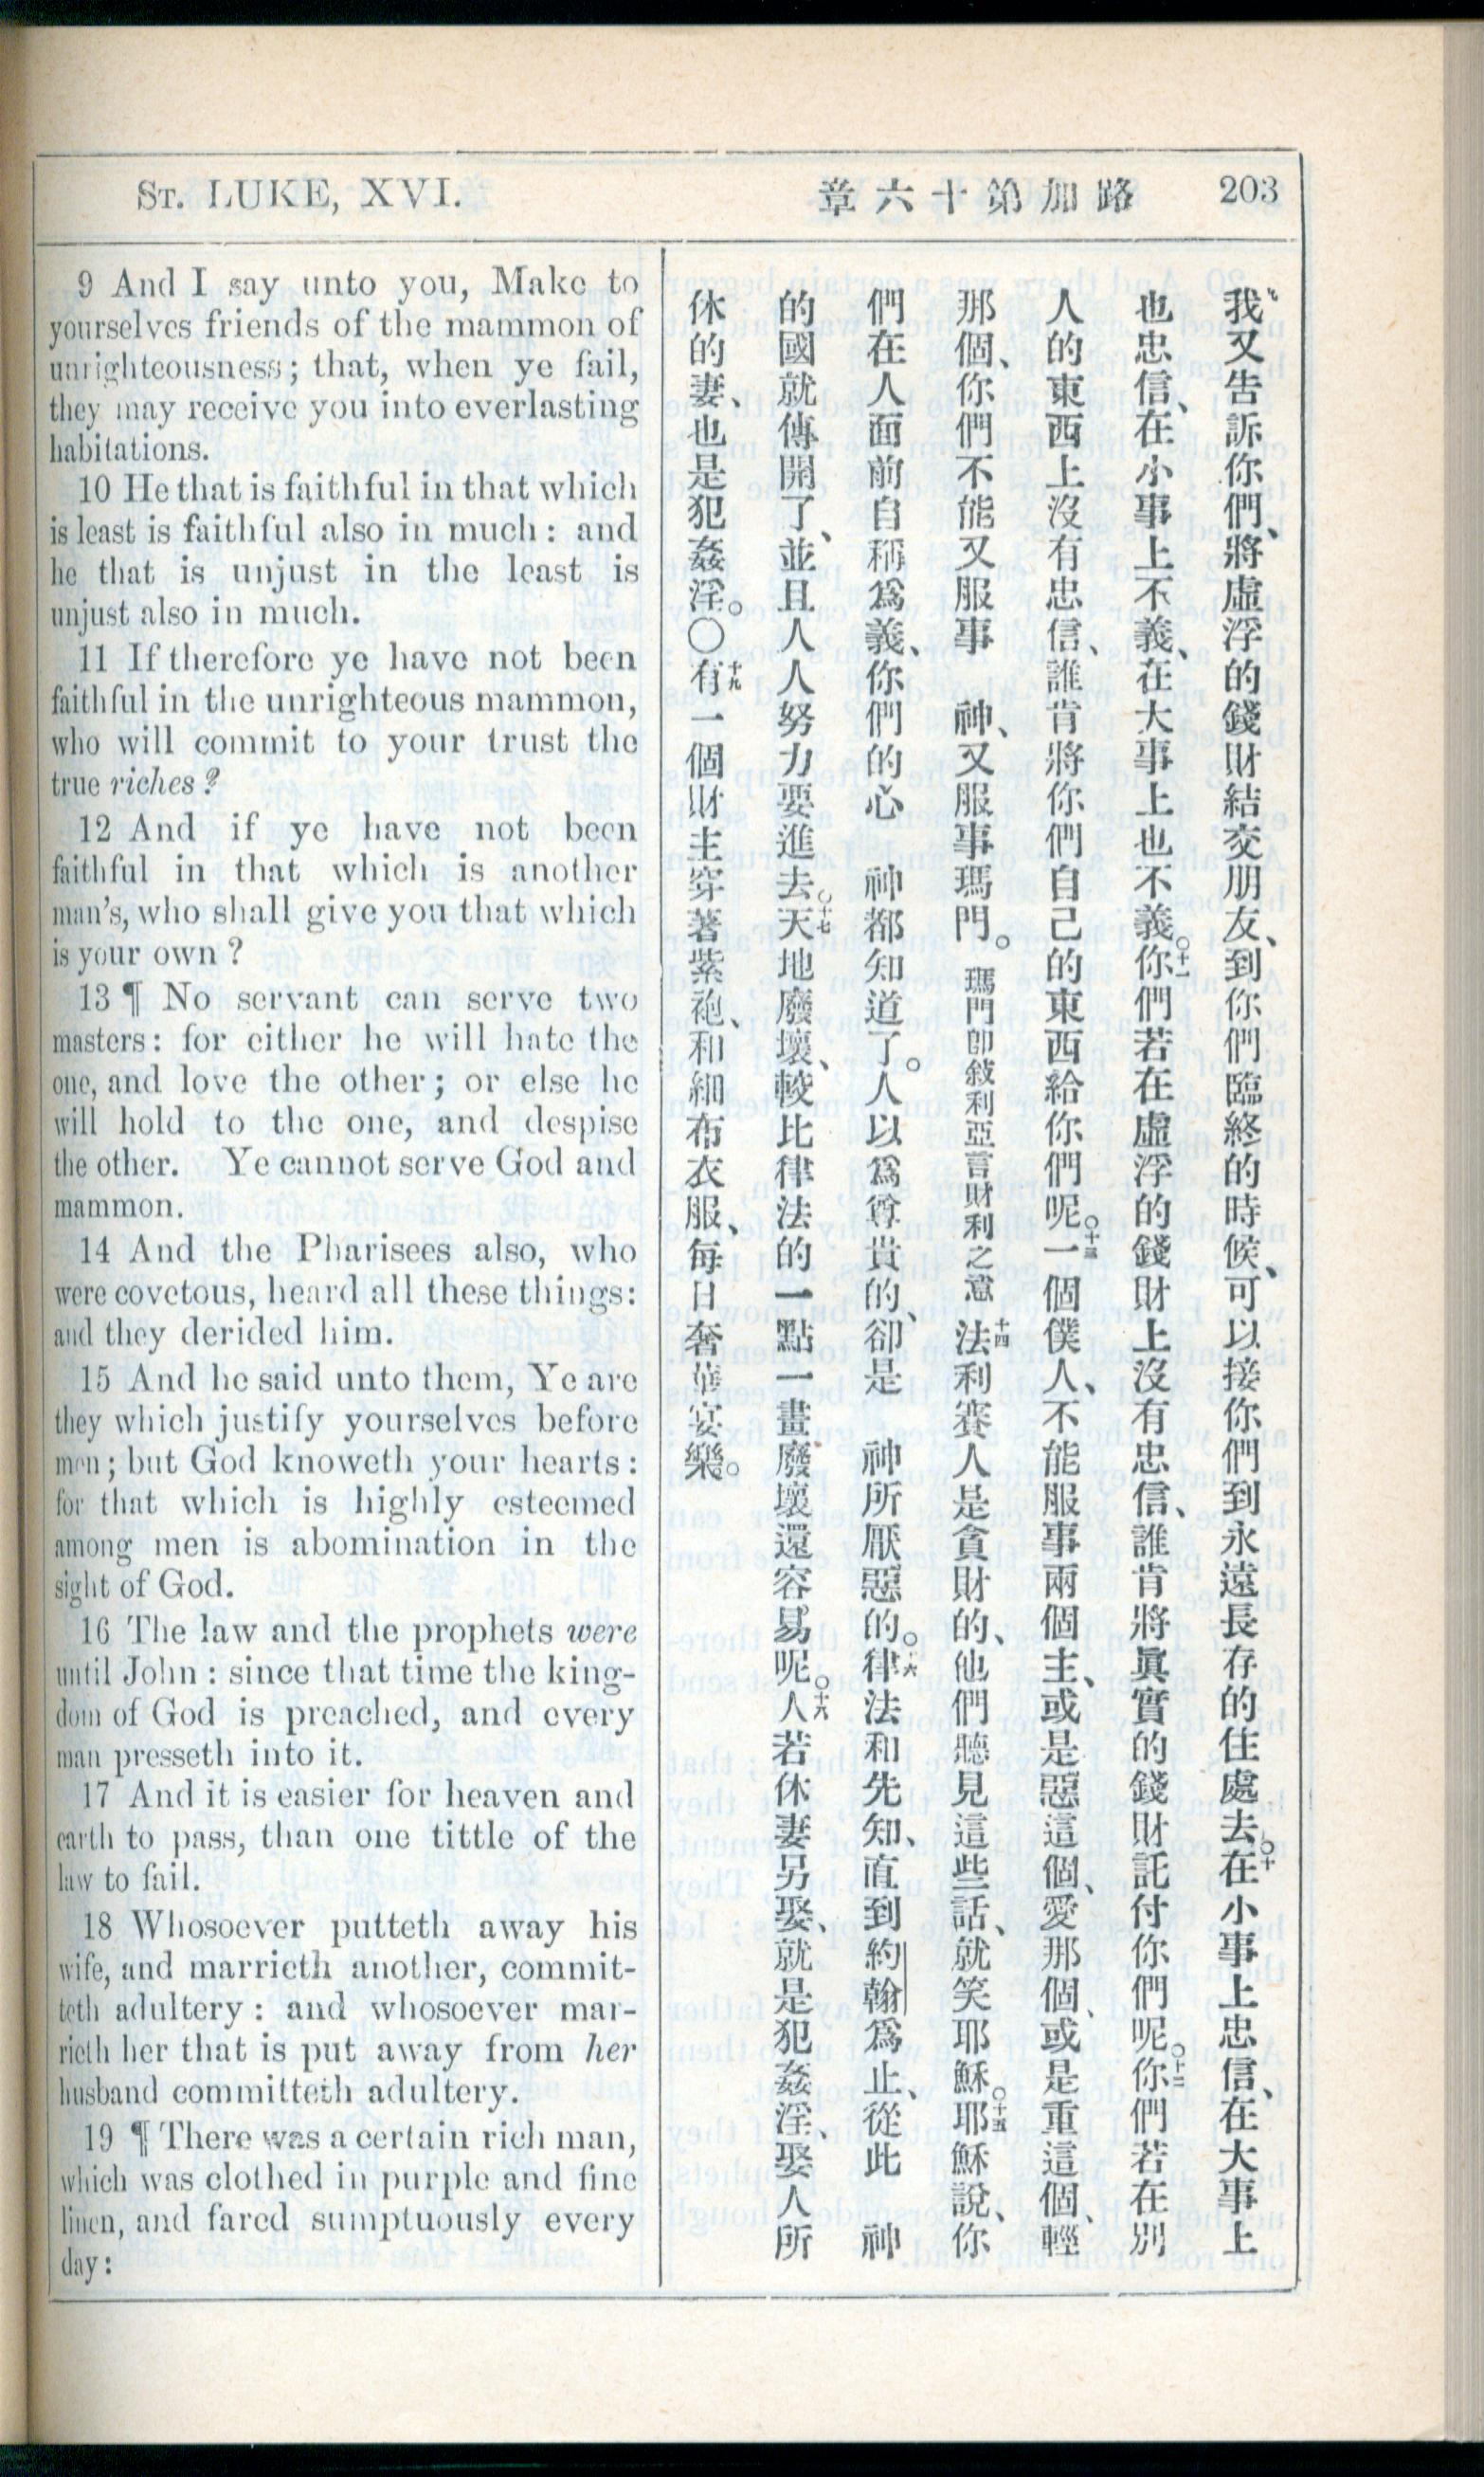 St. LUKE, XVI.
章六十第加路
203
9 And I say unto you, Make to
yourselves friends of the mammon of
unrighteousness; that, when ye fail,
they may receive you into everlasting
habitations.
10 He that is faithful in that which
is least is faithful also in much: and
he that is unjust in the least is
unjust also in much.
11 If therefore ye have not been
faithful in the unrighteous mammon,
who will commit to your trust the
true riches?
12 And if ye have not been
faithful in that which is another
man's, who shall give you that which
is your own?
13 ¶ No servant can serve two
masters: for either he will hate the
one, and love the other; or else he
will hold to the one, and despise
the other. Ye cannot serve God and
mammon.
14 And the Pharisees also, who
were covetous, heard all these things:
and they derided him.
15 And he said unto them, Ye are
they which justify yourselves before
men; but God knoweth your hearts:
for that which is highly esteemed
among men is abomination in the
sight of God.
16 The law and the prophets were
until John: since that time the king-
dom of God is preached, and every
man presseth into it.
17 And it is easier for heaven and
earth to pass, than one tittle of the
law to fail.
18 Whosoever putteth away his
wife, and marrieth another, commit-
teth adultery: and whosoever mar-
rieth her that is put away from her
husband committeth adultery.
19 ¶ There was a certain rich man,
which was clothed in purple and fine
linen, and fared sumptuously every
day:
我又告訴你們、將虛浮的錢財結交朋友、到你們臨終的時候、可以接你們到永遠長存的住處去。十在小事上忠信、在大事上
也忠信、在小事上不義、在大事上也不義。十一你們若在虛浮的錢財上沒有忠信、誰肯將眞實的錢財託付你們呢。十二你們若在別
人的東西上沒有忠信、誰肯將你們自己的東西給你們呢。十三一個僕人、不能服事兩個主、或是惡這個、愛那個、或是重這個、輕
那個、你們不能又服事 神、又服事瑪門。瑪門卽敍利亞言財利之意 十四法利賽人是貪財的、他們聽見這些話、就笑耶穌。十五耶穌說、你
們在人面前自稱爲義、你們的心 神都知道了。人以爲尊貴的、卻是 神所厭惡的。十六律法和先知、直到約翰爲止、從此 神
的國就傳開了、並且人人努力要進去。十七天地廢壞、較比律法的一點一畫廢壞還容易呢。十八人若休妻另娶、就是犯姦淫、娶人所
休的妻、也是犯姦淫。〇十九有一個財主穿著紫袍、和細布衣服、每日奢華宴樂。